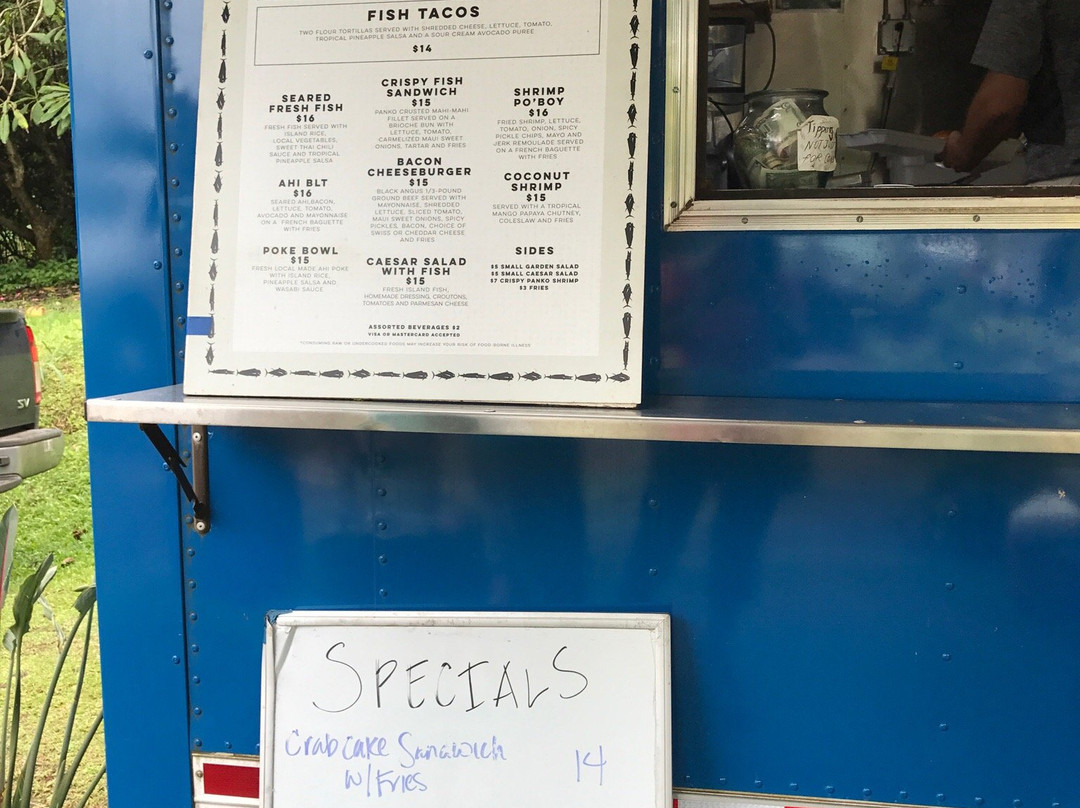 FISH TACOS
TWO FLOUR TORTILLAS SERVED WITH SHREDDED CHEESE, LETTUCE, TOMATO,
TROPICAL PINEAPPLE SALSA AND A SOUR CREAM AVOCADO PUREE
$14
SEARED
FRESH FISH
$16
FRESH FISH SERVED WITH
ISLAND RICE,
LOCAL VEGETABLES,
SWEET THAI CHILI
SAUCE AND TROPICAL
PINEAPPLE SALSA
AHI BLT
$16
SEARED AHI, BACON,
LETTUCE, TOMATO,
AVOCADO AND MAYONNAISE
ON A FRENCH BAGUETTE
WITH FRIES
POKE BOWL
$15
FRESH LOCAL MADE AHI POKE
WITH ISLAND RICE,
PINEAPPLE SALSA AND
WASABI SAUCE
CRISPY FISH
SANDWICH
$15
PANKO CRUSTED MAHI-MAHI
FILLET SERVED ON A
BRIOCHE BUN WITH
LETTUCE, TOMATO,
CARMELIZED MAUI SWEET
ONIONS, TARTAR AND FRIES
BACON
CHEESEBURGER
$15
BLACK ANGUS 1/3-POUND
GROUND BEEF SERVED WITH
MAYONNAISE, SHREDDED
LETTUCE, SLICED TOMATO,
MAUI SWEET ONIONS, SPICY
PICKLES, BACON, CHOICE OF
SWISS OR CHEDDAR CHEESE
AND FRIES
CAESAR SALAD
WITH FISH
$15
FRESH ISLAND FISH,
HOMEMADE DRESSING, CROUTONS,
TOMATOES AND PARMESAN CHEESE
SHRIMP
PO'BOY
$16
FRIED SHRIMP, LETTUCE,
TOMATO, ONION, SPICY
PICKLE CHIPS, MAYO AND
JERK REMOULADE SERVED
ON A FRENCH BAGUETTE
WITH FRIES
COCONUT
SHRIMP
$15
SERVED WITH A TROPICAL
MANGO PAPAYA CHUTNEY,
COLESLAW AND FRIES
SIDES
$5 SMALL GARDEN SALAD
$5 SMALL CAESAR SALAD
$7 CRISPY PANKO SHRIMP
$3 FRIES
ASSORTED BEVERAGES $2
VISA OR MASTERCARD ACCEPTED
*CONSUMING RAW OR UNDERCOOKED FOODS MAY INCREASE YOUR RISK OF FOOD-BORNE ILLNESS
Tipping
NOT JUST
FOR
SV
SPECIALS
Crab cake Sandwich 14
w/Fries